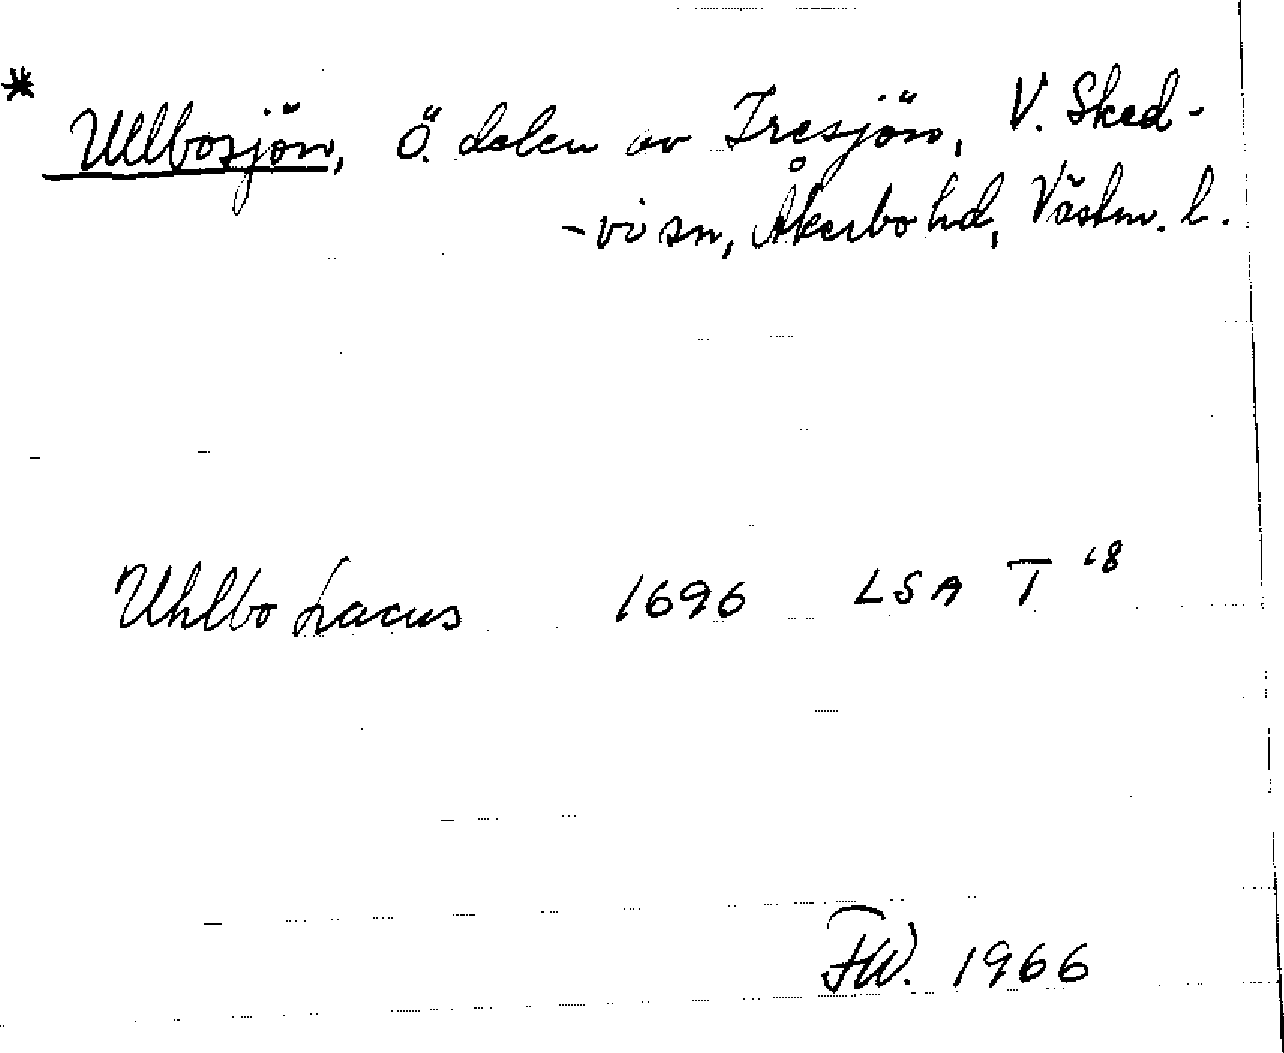 * Ullbosjön, Ö. delen av Iresjön, V. Sked-
-vi sn, Åkerbo hd, Västm. l.
Uhlbo Lacus 1696 LSA T 18
FW. 1966